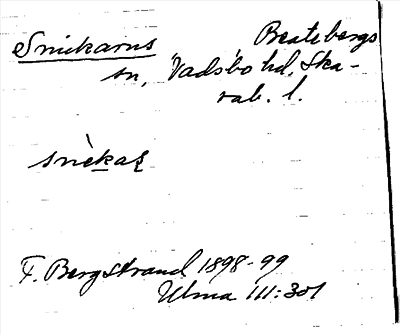 Snickarns Beatebergs
sn, Vadsbo hd, Ska-
rab. l.
snèkaʂ
F. Bergstrand 1898-99
Ulma 111:301